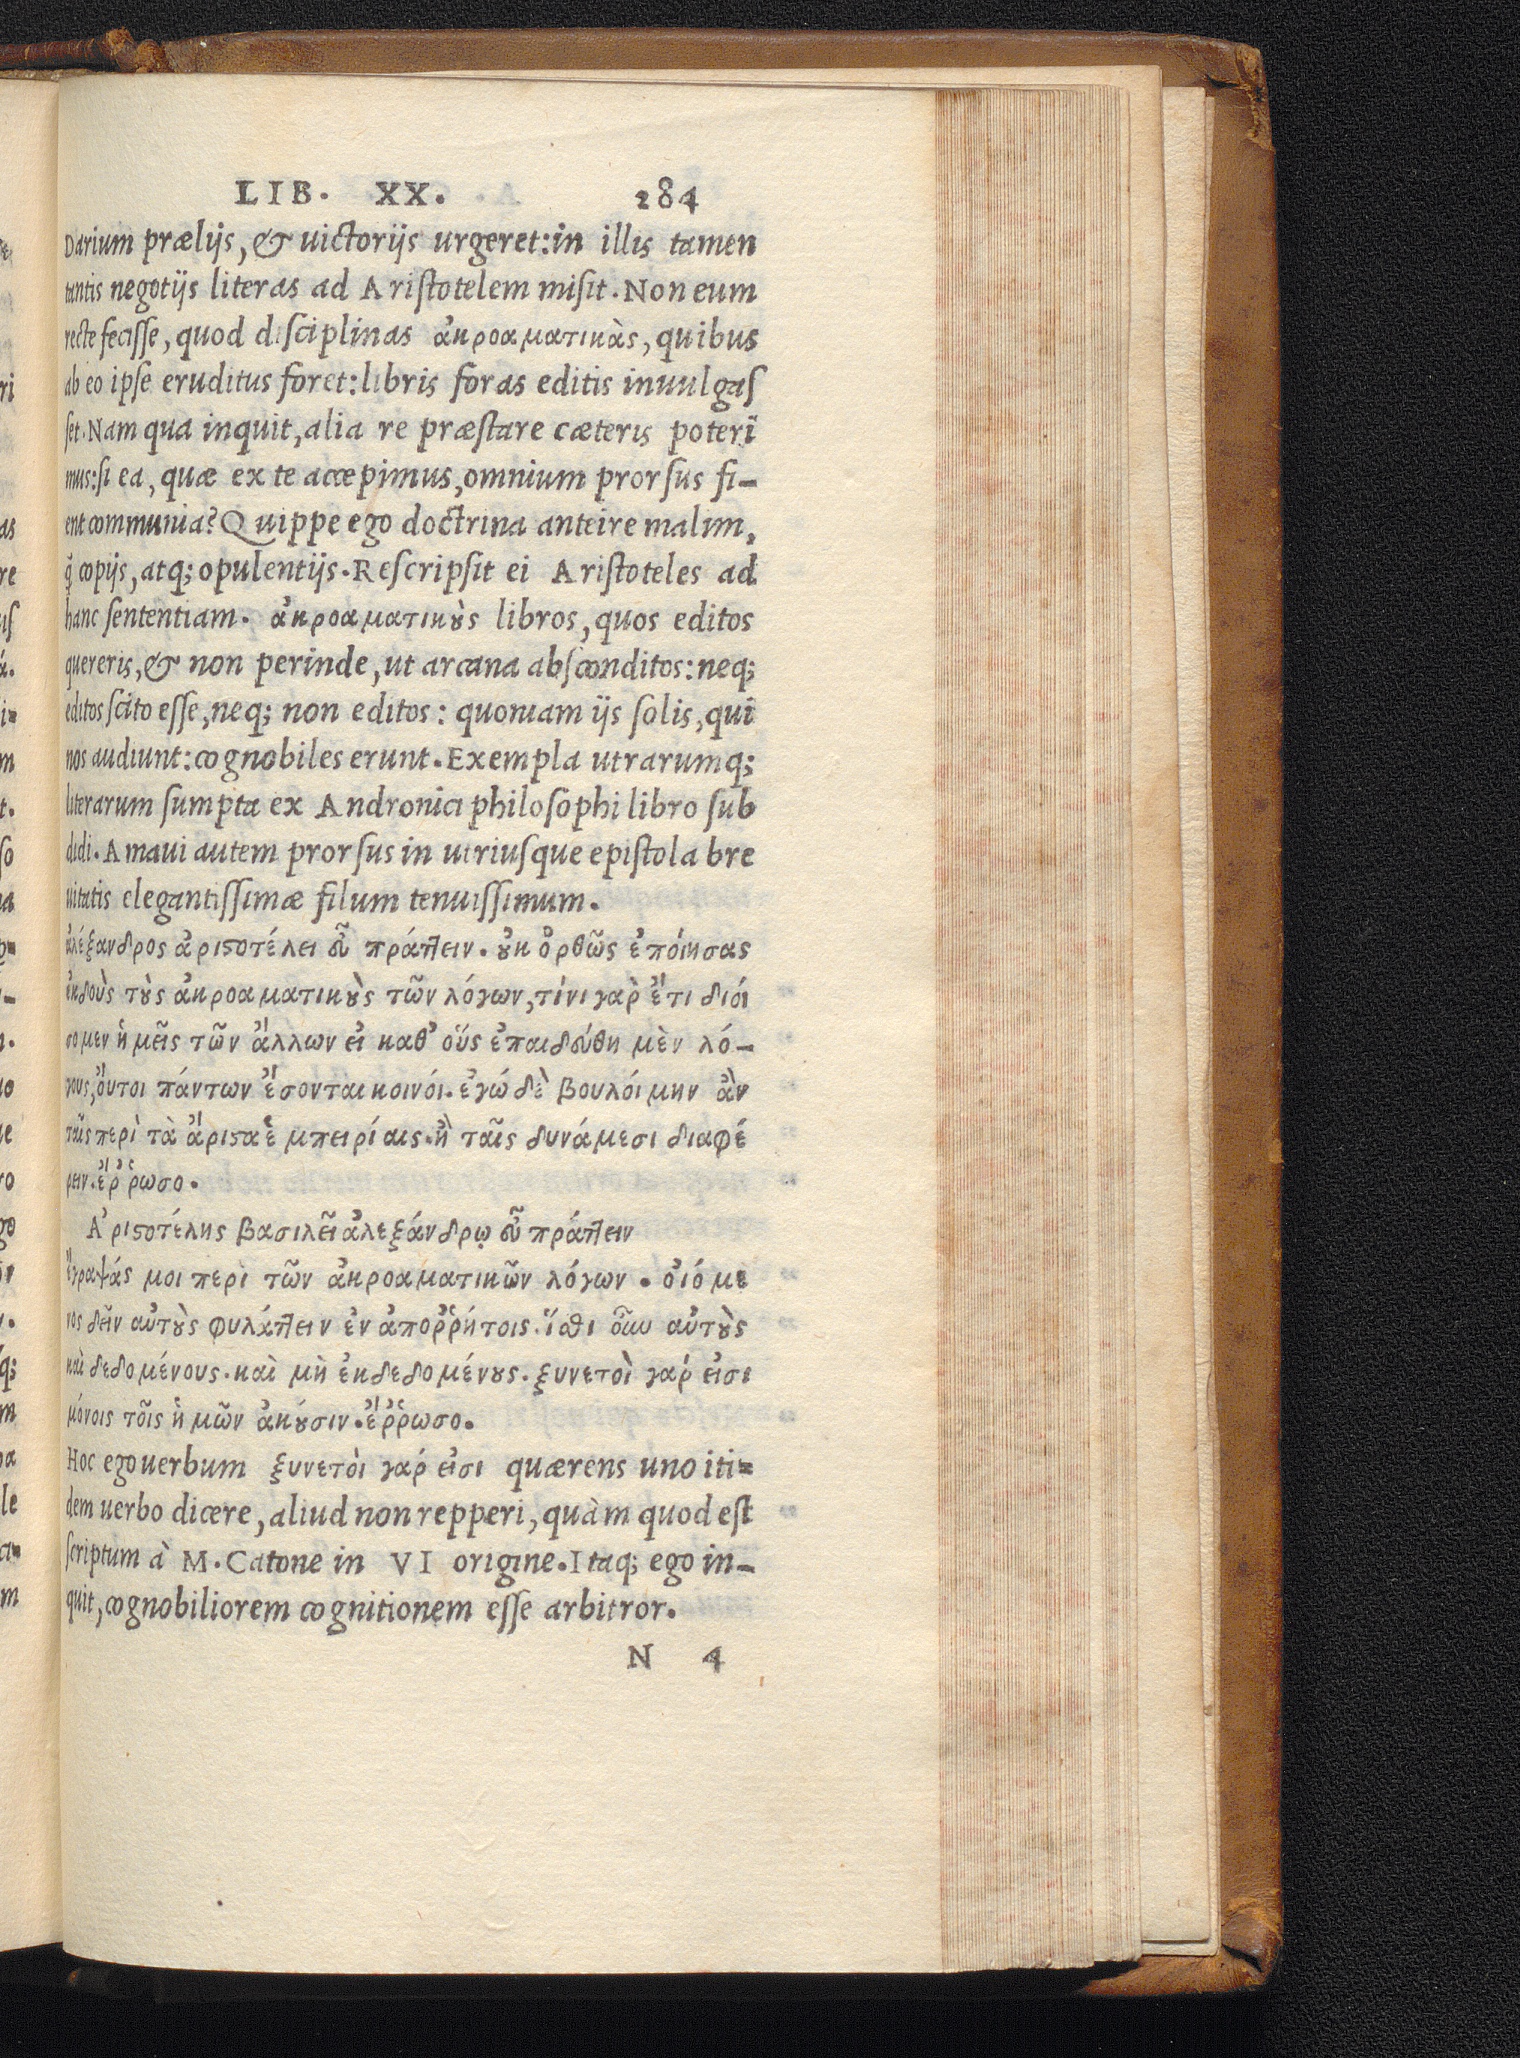 LIB. XX. 284
Darium prælijs, & uictorijs urgeret:in illis tamen
tantis negotijs literas ad Aristotelem misit. Non eum
recte fecisse, quod disciplinas ἀκροαματικὰς, quibus
ab eo ipse eruditus foret:libris foras editis inuulgas
set. Nam qua inquit, alia re præstare cæteris poteri
mus:si ea, quæ ex te accepimus, omnium prorsus fi-
ent communia? Quippe ego doctrina anteire malim,
q̃ copijs, atq; opulentijs. Rescripsit ei Aristoteles ad
hanc sententiam. ἀκροαματικοὺς libros, quos editos
quereris, & non perinde, ut arcana absconditos: neq;
editos scito esse, neq; non editos: quoniam ijs solis, qui
nos audiunt: cognobiles erunt. Exempla utrarumq;
literarum sumpta ex Andronici philosophi libro sub
didi. Amaui autem prorsus in utriusque epistola bre
uitatis elegantissimæ filum tenuissimum.
ἀλέξανδρος ἀριστοτέλει εὖ πράττειν. οὐκ ὀρθῶς ἐπόιησας
ἐκδοὺς τοὺς ἀκροαματικοὺς τῶν λόγων, τίνι γαρ̀ ἔτι διόι
σομεν ἡ μεῖς τῶν ἄλλων εἰ καθ' οὕς ἐπαιδεύθη μὲν λό-
γους, ὅυτοι πάντων ἔσονται κοινόι. ἐγώ δὲ βουλόι μην ἂν
ταῖς περὶ τὰ ἄριστα ἐ μπειρίαις. ἢ ταῖς δυνάμεσι διαφέ
ρειν. ἔῤῥωσο.
Ἀριστοτέλης βασιλεῖ ἀλεξάνδρῳ εὖ πράττειν
ἔγραψάς μοι περὶ τῶν ἀκροαματικῶν λόγων. οἰό με
νος δεῖν αὐτοὺς φυλάττειν ἐν ἀποῤῥήτοις. ἴσθι οὖν αὐτοὺς
καὶ δεδομένους. καὶ μὴ ἐκδεδομένους. ξυνετοὶ γάρ εἰσι
μόνοις τοῖς ἡ μῶν ἀκούσιν. ἔῤῥωσο.
Hoc ego uerbum ξυνετὸι γάρ εἰσι quærens uno iti=
dem uerbo dicere, aliud non repperi, quàm quod est
scriptum à M. Catone in VI origine. Itaq; ego in-
quit, cognobiliorem cognitionem esse arbitror.
N 4